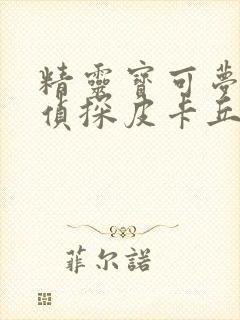 精靈寶可夢
偵探皮卡丘
菲尔諾